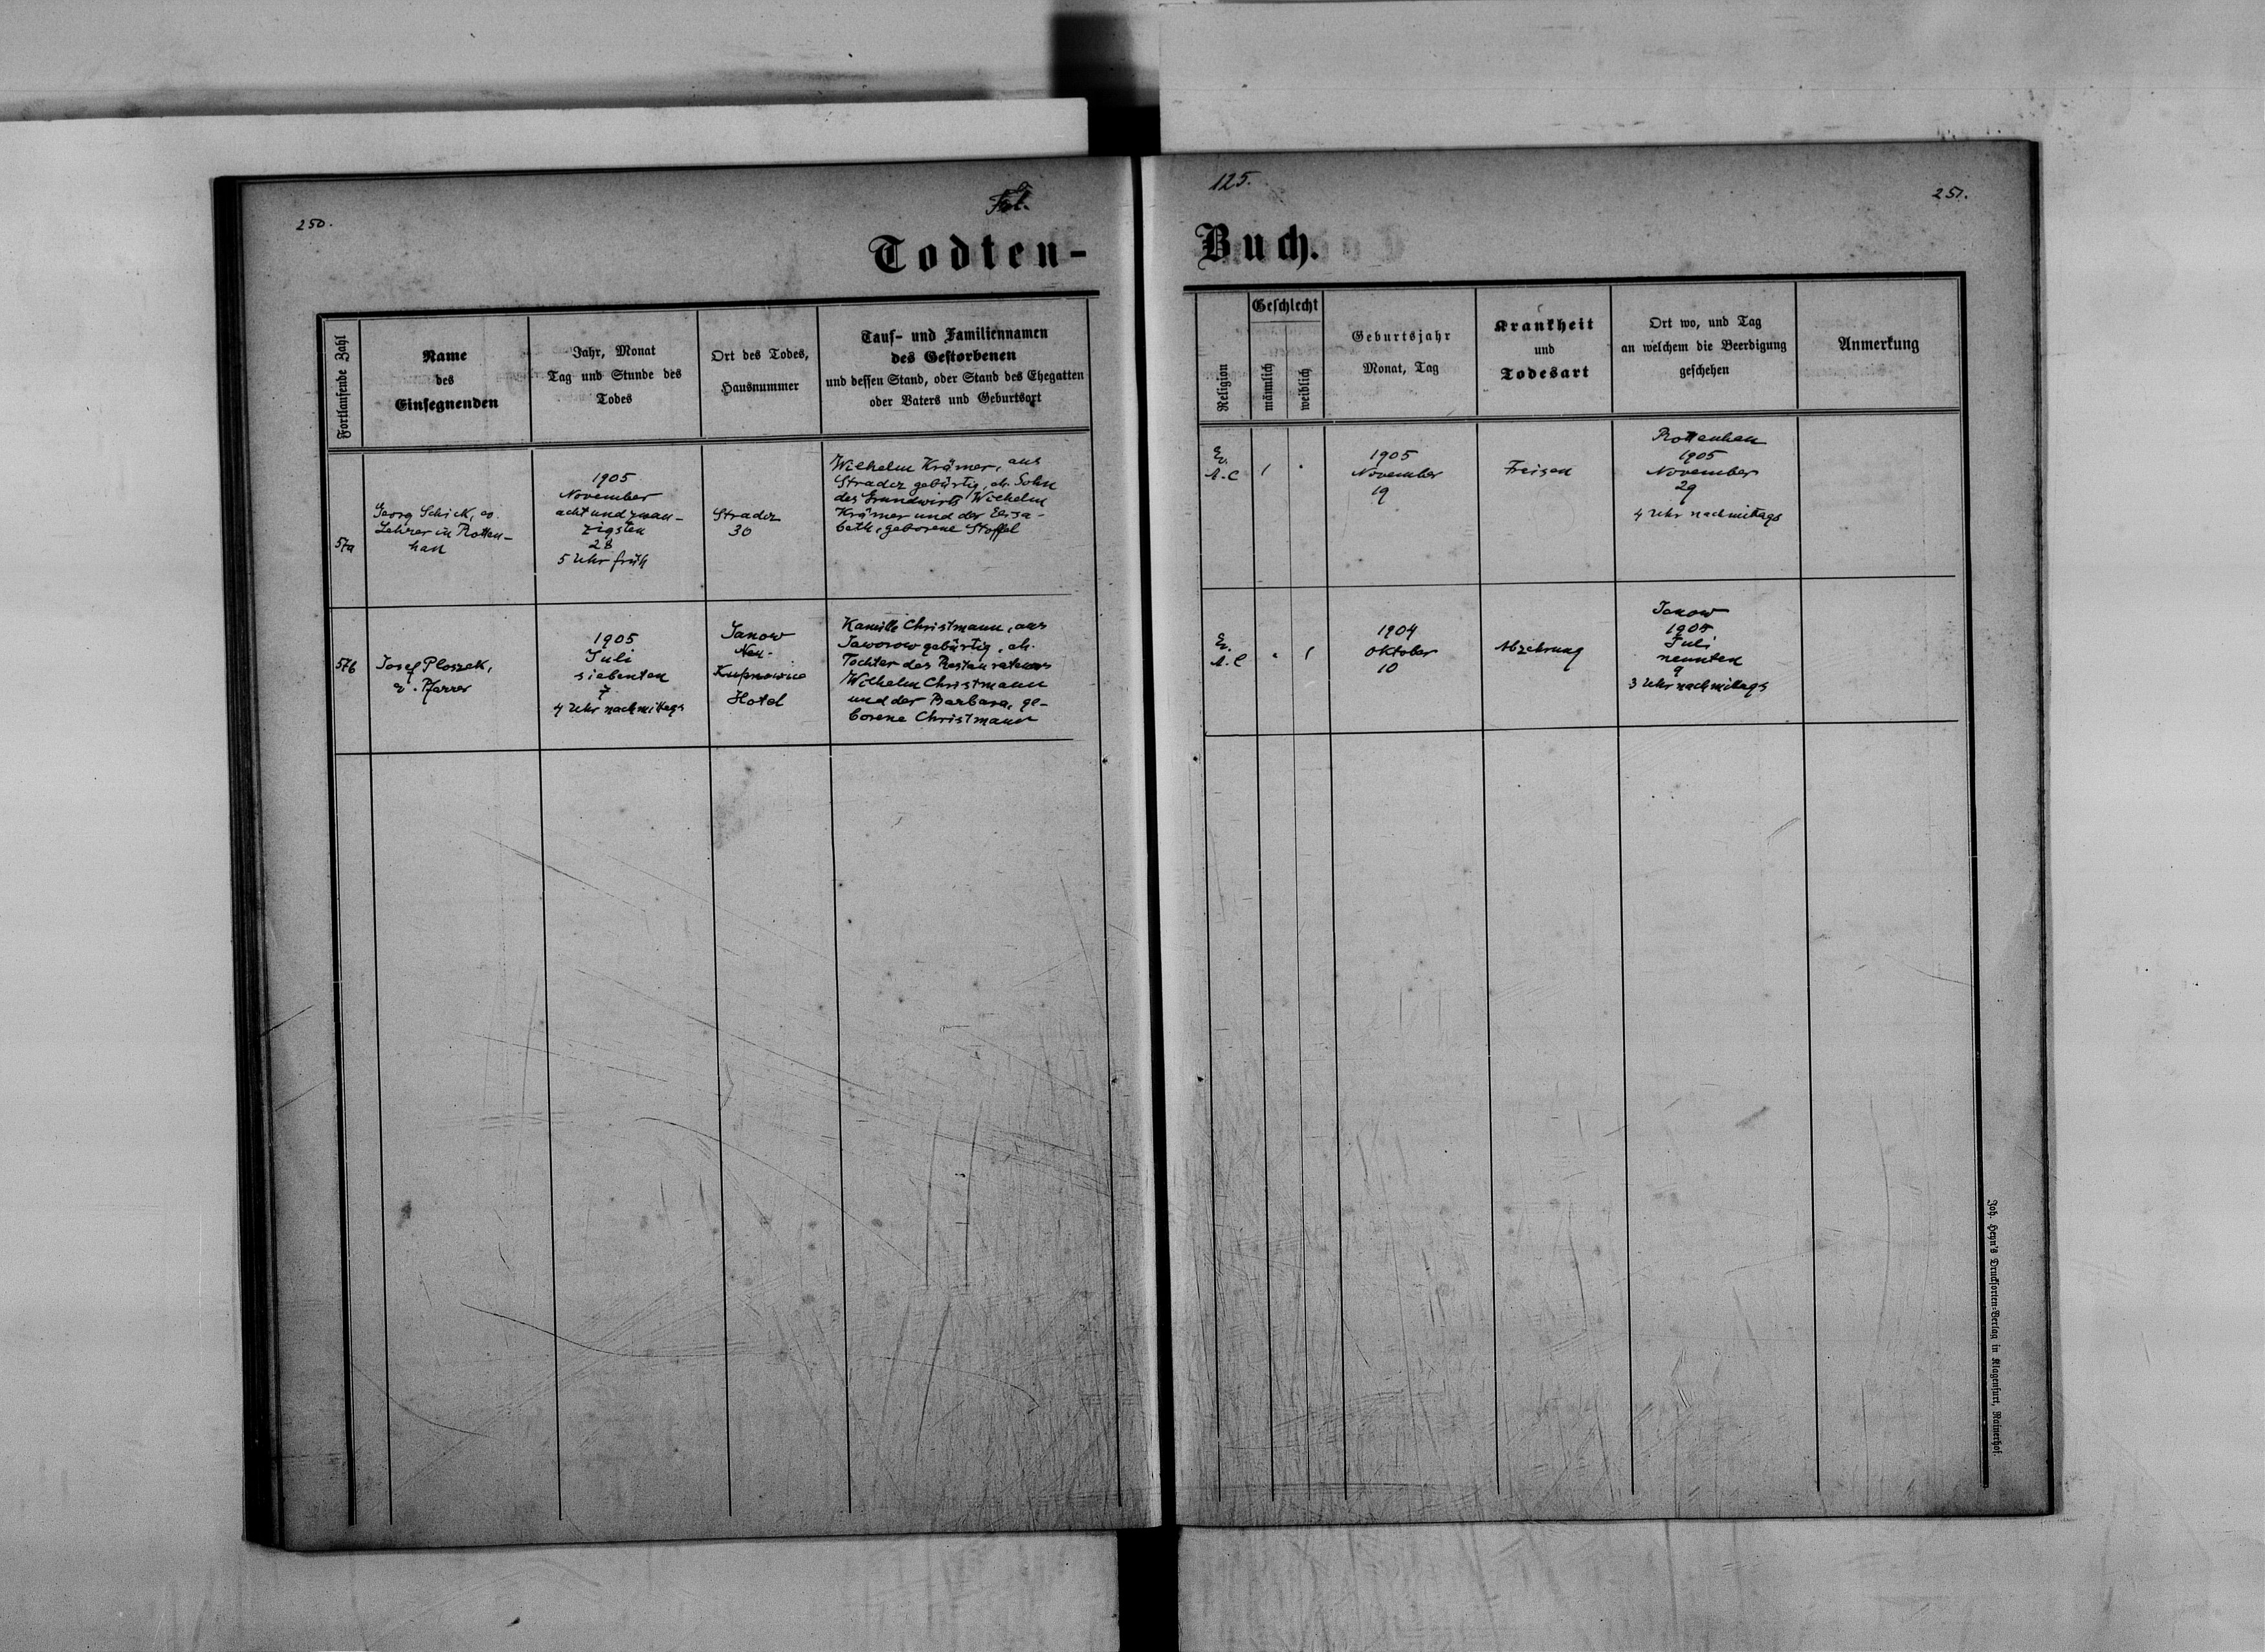 250.
Fol.
125.
251.
Todten-
Buch.
Fortlaufende Zahl
Name
des
Einsegnenden
Jahr, Monat
Tag und Stunde des
Todes
Ort des Todes,
Hausnummer
Tauf- und Familiennamen
des Gestorbenen
und dessen Stand, oder Stand des Ehegatten
oder Vaters und Geburtsort
Religion
Geschlecht
männlich
weiblich
Geburtsjahr
Monat, Tag
Krankheit
und
Todesart
Ort wo, und Tag
an welchem die Beerdigung
geschehen
Anmerkung
57a
Georg Schick, ev.
Lehrer in Rotten-
han
1905
November
acht und zwan-
zigsten
28
5 Uhr früh
Stradcz
30
Wilhelm Krämer, aus
Stradcz gebürtig, eh. Sohn
des Grundwirts Wilhelm
Krämer und der Elisa-
beth, geborene Stoffel
Ev.
A.C
1
1905
November
19
Freisen
Rottenhan
1905
November
29
4 Uhr nachmittags
57b
Josef Ploszek,
ev. Pfarrer
1905
Juli
siebenten
7
4 Uhr nachmittags
Janow
Neu-
Kupnowice
Hotel
Kamille Christmann, aus
Jaworow gebürtig, eh.
Tochter des Restaurateurs
Wilhelm Christmann
und der Barbara, ge-
borene Christmann
Ev.
A.C
1
1904
Oktober
10
Abzehrung
Janow
1905
Juli
neunten
9
3 Uhr nachmittags
Joh. Heyn's Drucksorten-Verlag in Klagenfurt, Rainerhof.